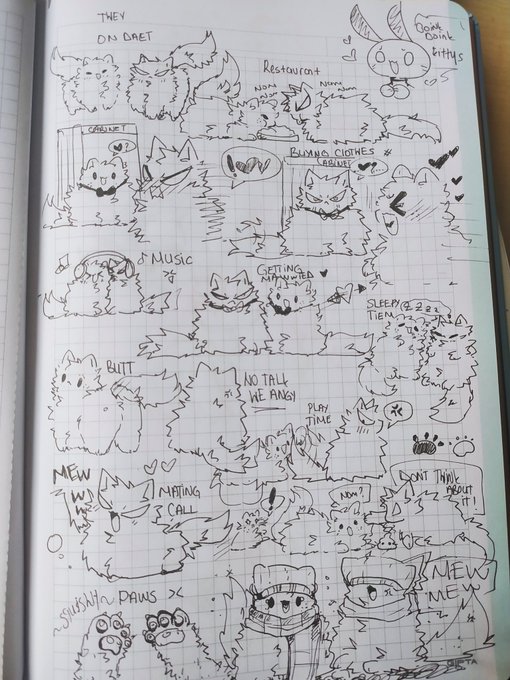 THEY
ON DAET
DOINK
DOINK
KITTYS
Restaurant
NOM
NOM
NOM
NOM
CABINET
?
BUYING CLOTHES
CABINET
MUSIC
GETTING
MAWWIED
SLEEPY
TIEM
Z Z Z Z
BUTT
NO TALK
WE ANGY
PLAY
TIME
MEW
MATING
CALL
!
NOM?
DONT THINK
ABOUT
IT!
~SQUISHY~ PAWS
MEW
MEW